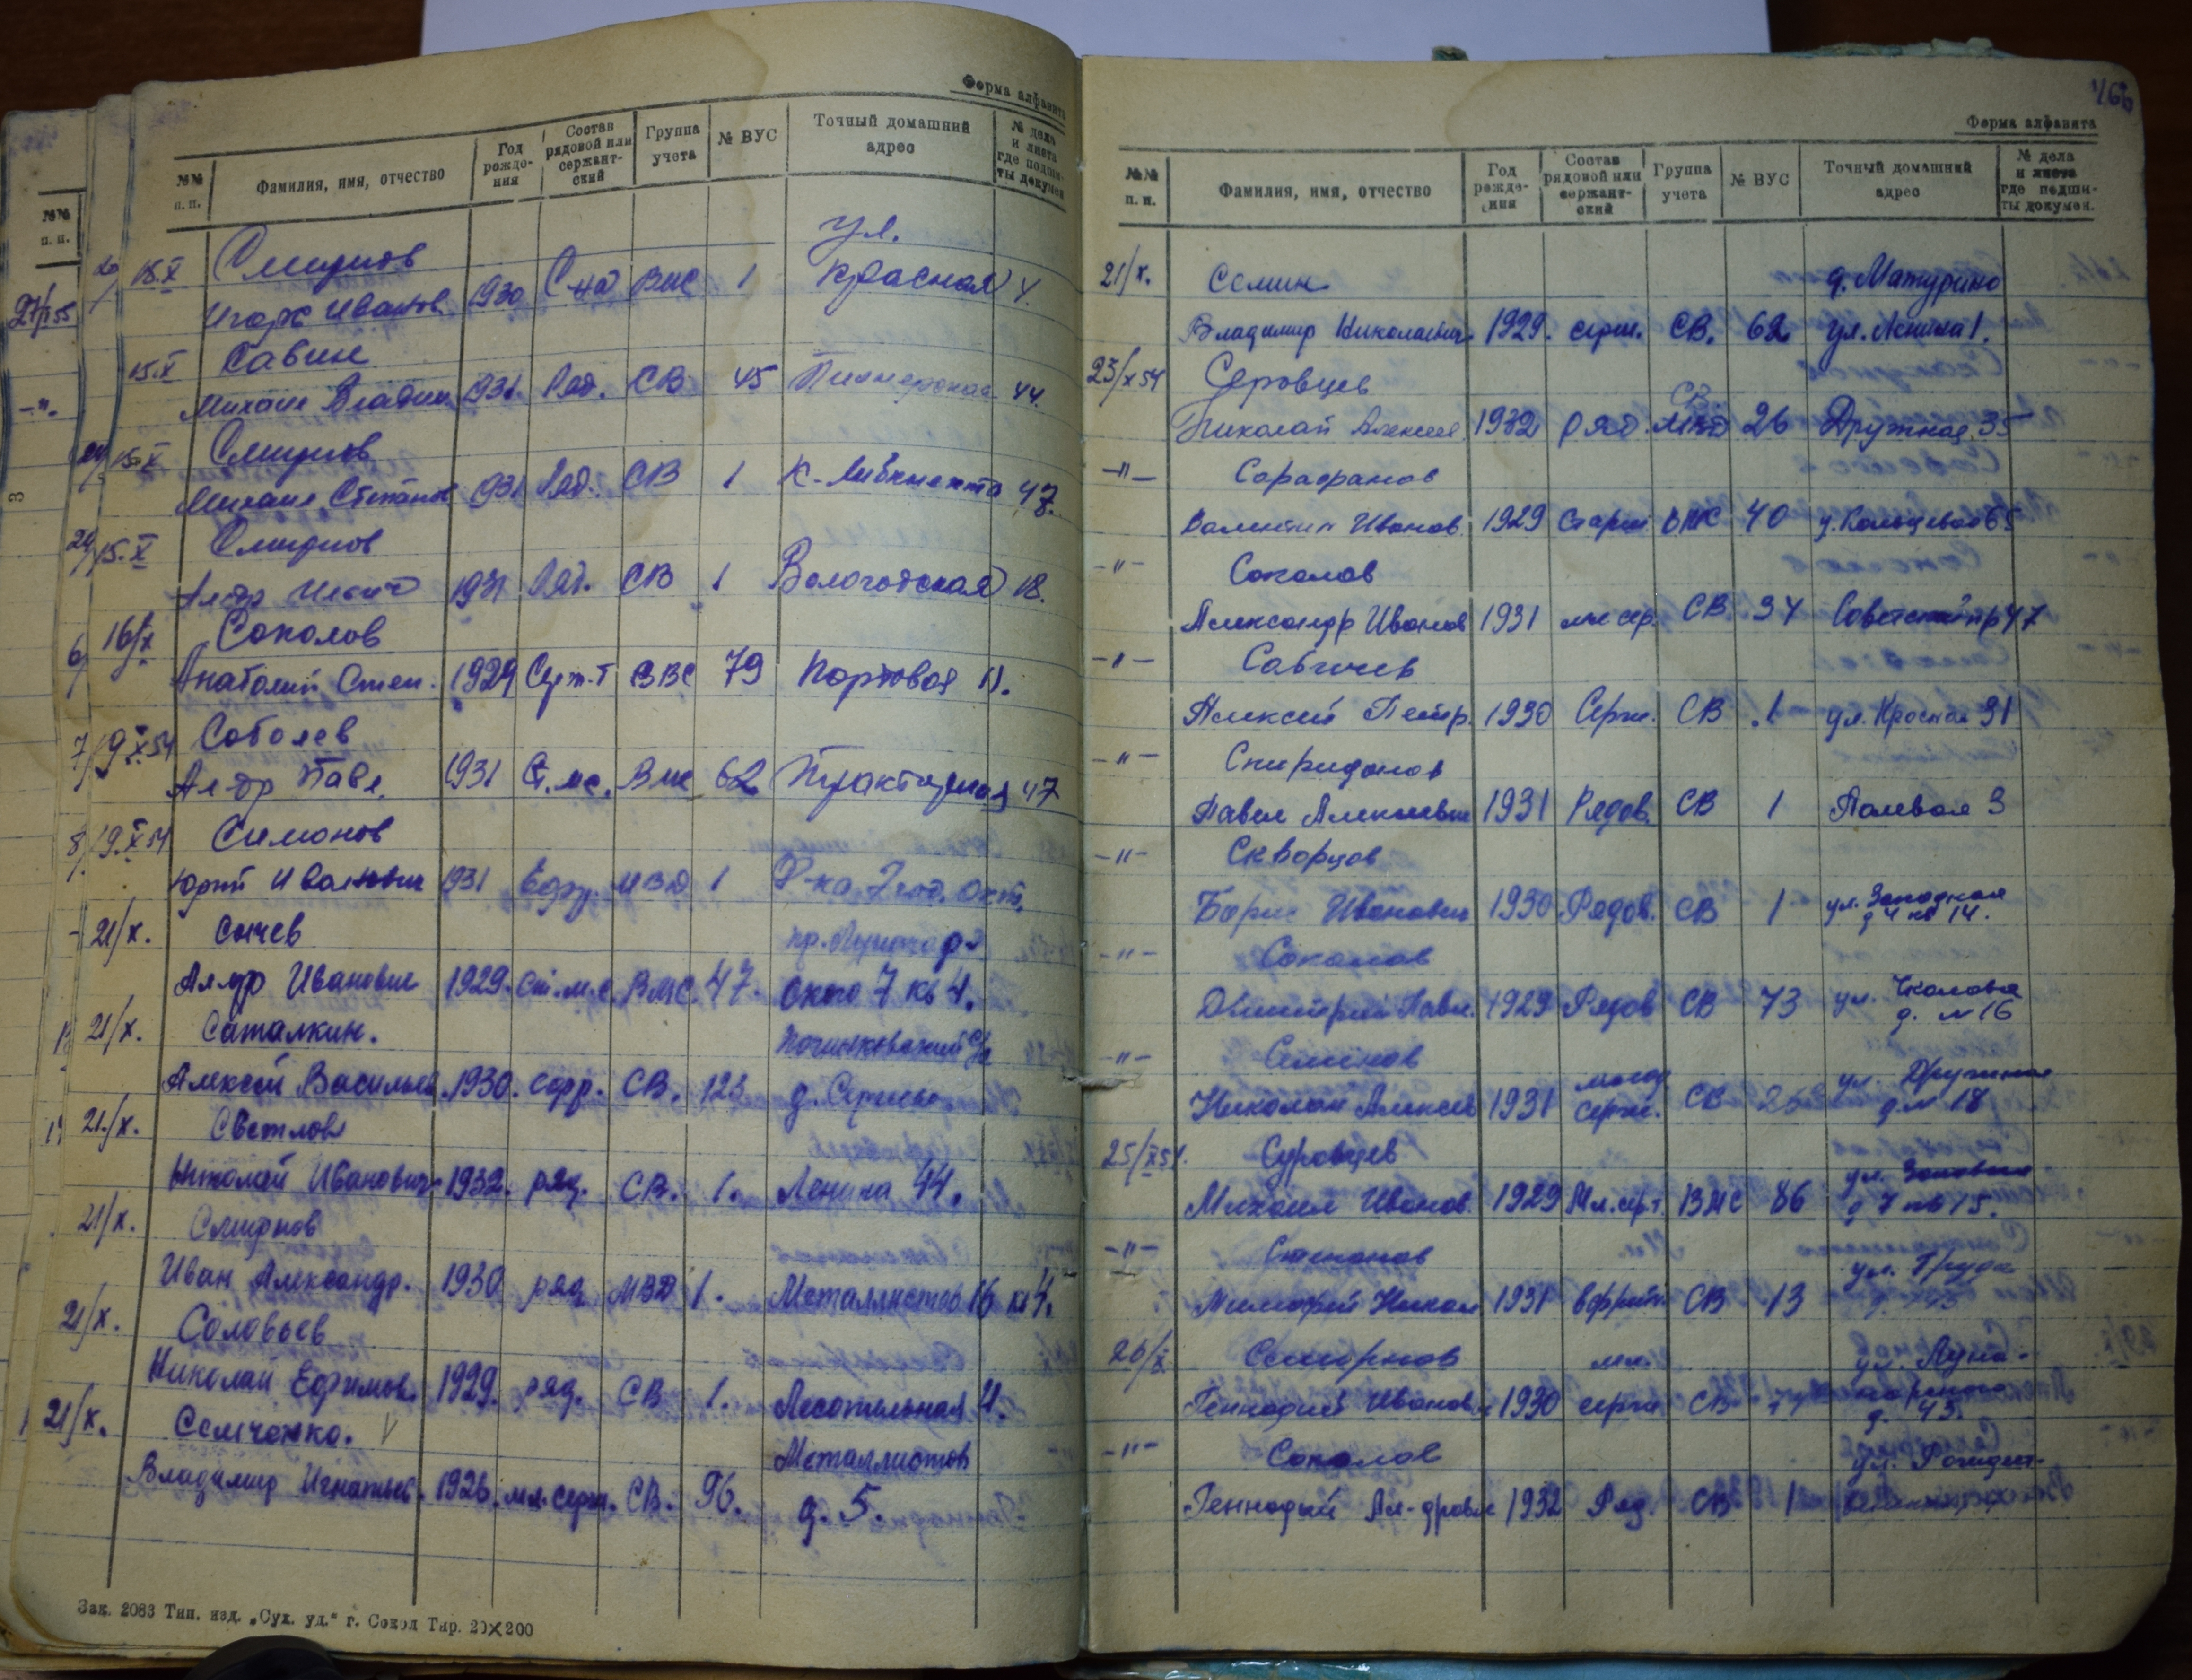 Форма алфавита
№№ п. п.
Фамилия, имя, отчество
Год рождения
Состав рядовой или сержантский
Группа учета
№ ВУС
Точный домашний адрес
№ дела и листа где подшиты докумен.
18.X Смирнов ул.
Игорь Иванов. 1930 ВМС 1 Красная 4.
15.X Савин
Михаил Владим. 1931. Ряд. СВ 45 Пионерская 44.
15.X Смирнов
Михаил Степанов 1931 Ряд. СВ 1 К-Либкнехта 47.
15.X Смирнов
Ал-др 1931 Ряд. СВ 1 Вологодская 18.
16/X Соколов
Анатолий Степ. 1929 Серж-т ВВС 79 Портовая 11.
19.X.54 Соболев
Ал-др Павл. 1931 Ст. мс. ВМС 62 47
19.X.54 Симонов
Юрий Иванович 1931 Ефр. МВД 1 Ф-ка 7 год. Окт.
21/X. Сычев
Ал-др Иванович 1929. Ст. м.с. ВМС. 47. 7 кв 4.
21/X. Саталкин.
Алексей Васильев. 1930. ефр. СВ. 123 д.
21/X. Светлов
Николай Иванович 1932. ряд. СВ. 1. Ленина 44.
21/X. Смирнов
Иван Александр. 1930 ряд МВД 1. Металлистов 16 кв 4.
21/X. Соловьев
Николай Ефимов. 1929. ряд. СВ 1. Лесопильная 11.
21/X. Семченко. V Металлистов
Владимир Игнатьев. 1926. мл. серж. СВ. 96. д. 5.
Зак. 2083 Тип. изд. „Сух. уд.“ г. Сокол Тир. 20X200
166
Форма алфавита
№№ п. п.
Фамилия, имя, отчество
Год рождения
Состав рядовой или сержантский
Группа учета
№ ВУС
Точный домашний адрес
№ дела и листа где подшиты докумен.
21/X. Семин д. Матурино
Владимир Николаевич 1929. серж. СВ. 62 ул. Ленина 1.
23/X 54 Серовцев СВ
Николай Алексеев. 1932 ряд. 26 Дружная 35
-"- Сарафанов
Валентин Иванов. 1929 Старш ВМС 40 65
-"- Соколов
Александр Иванов 1931 мл сер. СВ 34 Советский пр 47
-"- Савичев
Алексей Петр. 1930 Серж. СВ 1 ул. Красная 31
-"- Спиридонов
Павел Алексеевич 1931 Рядов. СВ 1 Полевая 3
-"- Скворцов
Борис Иванович 1930 Рядов. СВ 1 ул. Западная д 4 кв 14.
-"- Соколов
Дмитрий Павл. 1929 Рядов СВ 73 ул. Чкалова д. № 16
-"- Семенов
Николай Алексеев 1931 серж. СВ 26 ул. Дружная д № 18
25/X 54. Суровцев
Михаил Иванов. 1929 Мл. сер-т. ВМС 86 ул. д 7 кв 15.
-"- Степанов
Никол 1931 ефрейт. СВ 13 ул. Труда
26/X Смирнов мл. ул. Луна-
Геннадий Иванович 1930 серж СВ чарского д. 43
-"- Соколов
Геннадий Ал-дрович 1932 Ряд. СВ 1